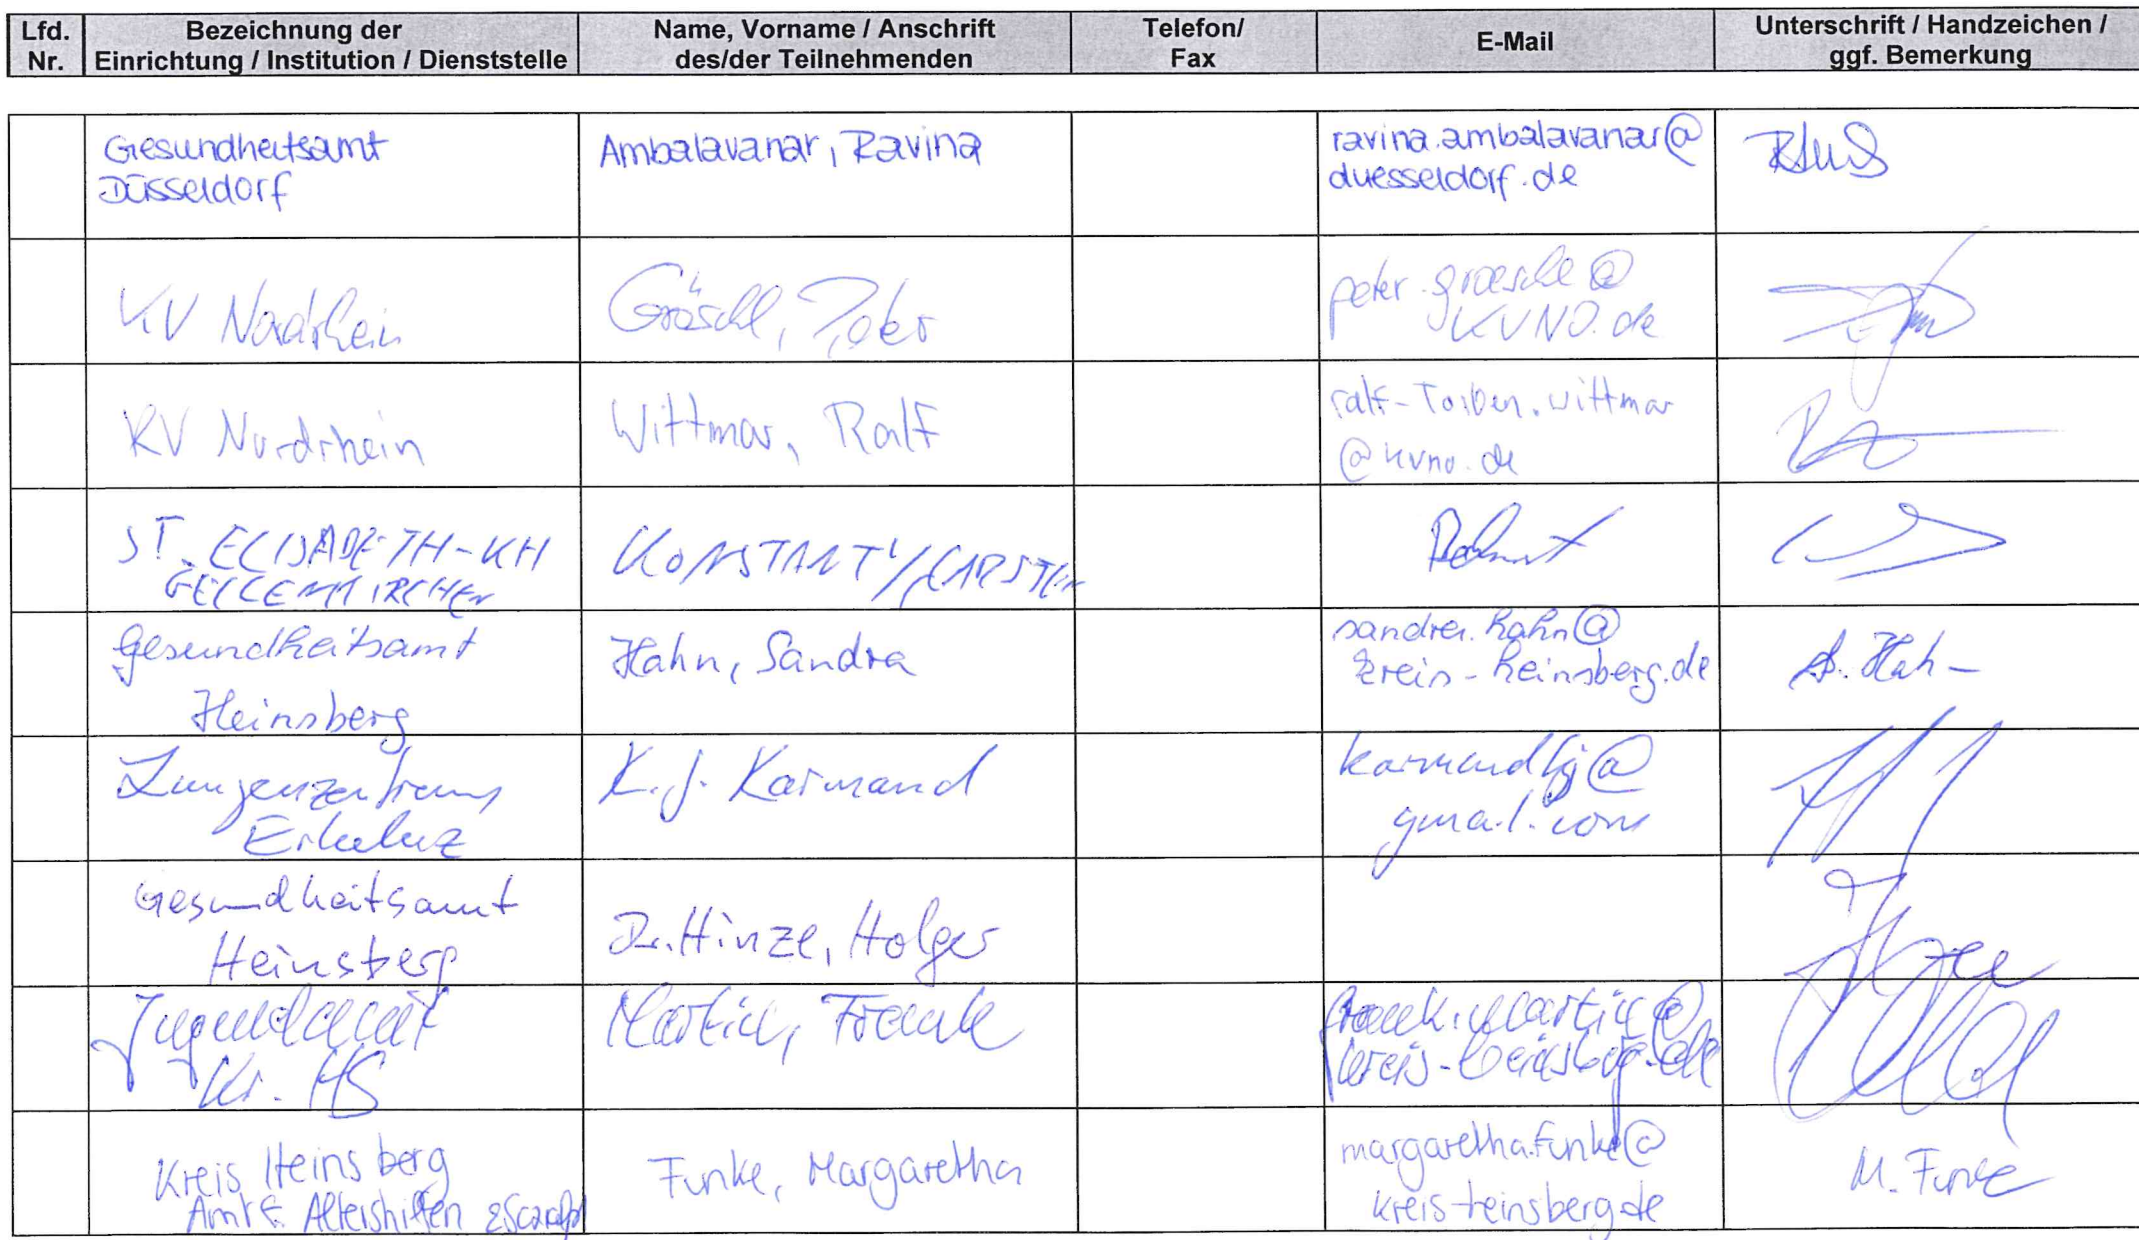 Lfd. Nr.
Bezeichnung der
Einrichtung / Institution / Dienststelle
Name, Vorname / Anschrift
des/der Teilnehmenden
Telefon/
Fax
E-Mail
Unterschrift / Handzeichen /
ggf. Bemerkung
Gesundheitsamt
Düsseldorf
Ambalavanar, Ravina
ravina.ambalavanar@
duesseldorf.de
KV Nordrhein
Gröschl, Peter
peter.groeschl@
KVNO.de
KV Nordrhein
Wittmar, Ralf
ralf-Torben.wittmar
@kvno.de
ST. ELISABETH-KH
GEILENKIRCHEN
KONSTANTY, CARSTEN
Gesundheitsamt
Heinsberg
Hahn, Sandra
sandra.hahn@
kreis-heinsberg.de
S. Hah
Lungenzentrum
Erkelenz
K.J. Karmand
karmandkj@
gmail.com
Gesundheitsamt
Heinsberg
Dr. Hinze, Holger
Jugendamt
Kr. HS
Martin, Frank
frank.martin@
kreis-heinsberg.de
Kreis Heinsberg
Amt f. Altershilfen
Funke, Margaretha
margaretha.funke@
kreis-heinsberg.de
M. Funke